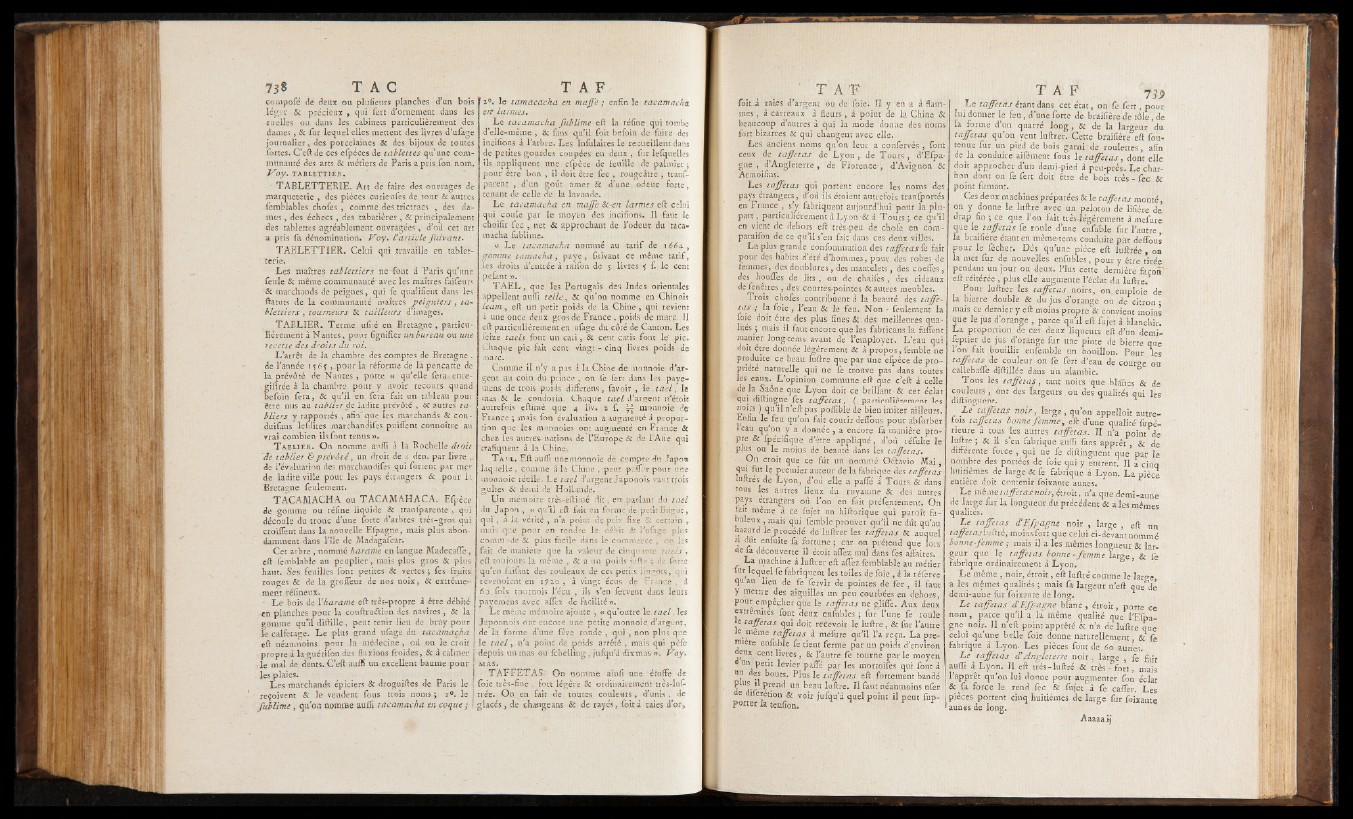 738 T A C
composé de deux ou plusieurs planches d'un bois
léger & précieux, qui sert d'ornement dans les
ruelles ou dans les cabinets particulièrement des
dames, & sur lequel elles mettent des livres d'usage
journalier, des porcelaines & des bijoux de toutes
sortes. C'est de ces espèces de tablettes qu'une com-
munauté des arts & métiers de Paris a pris son nom.
Voy. TABLETTIER.
TABLETTERIE. Art de faire des ouvrages de
marqueterie, des pièces curieuses de tour & autres
semblables choses, comme des trictracs, des da-
mes, des échecs, des tabatières, & principalement
des tablettes agréablement ouvragées, d'où cet art
a pris sa dénomination. Voy. l'article suivant.
TABLETTIER. Celui qui travaille en tablet-
terie.
Les maîtres tablettiers ne font à Paris qu'une
seule & même communauté avec les maîtres faiseurs
& marchands de peignes, qui se qualifient dans les
statuts de la communauté maîtres peigniers, ta-
blettiers, tourneurs & tailleurs d'images.
TABLIER. Terme usité en Bretagne, particu-
lièrement à Nantes, pour signifier un bureau ou une
recette des droits du roi.
L'arrêt de la chambre des comptes de Bretagne,
de l'année 1565, pour la réforme de la pencarte de
la prévôté de Nantes, porte « qu'elle sera enre-
gistrée à la chambre pour y avoir recours quand
besoin sera, & qu'il en sera fait un tableau pour
être mis au tablier de ladite prévôté, & autres ta-
bliers y rapportés, afin que les marchands & con-
duisans lesdites marchandises puissent connoître au
vrai combien ils sont tenus ».
TABLIER. On nomme aussi à la Rochelle droit
de tablier & prévôté, un droit de 4 den. par livre
de l'évaluation des marchandises qui sortent par mer
de ladite ville pour les pays étrangers & pour la
Bretagne seulement.
TACAMACHA ou TACAMAHACA. Espèce
de gomme ou résine liquide & transparente, qui
découle du tronc d'une sorte d'arbres très-gros qui
croissent dans la nouvelle Espagne, mais plus abon-
damment dans l'île de Madagascar.
Cet arbre, nommé harame en langue Madecasse,
est semblable au peuplier, mais plus gros & plus
haut. Ses feuilles sont petites & vertes; ses fruits
rouges & de la grosseur de nos noix, & extrême-
ment résineux.
Le bois de l'harame est très-propre à être débité
en planches pour la construction des navires, & la
gomme qu'il distille, peut tenir lieu de bray pour
le calfetage. Le plus grand usage du tacamacha
est néanmoins pour la médecine, où on le croit
propre à la guérison des fluxions froides, & à calmer
le mal de dents. C'est aussi un excellent baume pour
les plaies.
Les marchands épiciers & droguistes de Paris le
reçoivent & le vendent sous trois noms; 1°. le
sublime, qu'on nomme aussi tacamacha en coque;
T A F
2°. le tamacacha en masse; enfin le tacamacha
en larmes.
Le tacamacha sublime est la résine qui tombe
d'elle-même, & sans qu'il soit besoin de faire des
incisions à l'arbre. Les Insulaires le recueillent dans
de petites gourdes coupées en deux, sur lesquelles
ils appliquent une espèce de feuille de palmier;
pour être bon, il doit être sec, rougeâtre, trans-
parent, d'un goût amer & d'une odeur forte,
tenant de celle de la lavande.
Le tacamacha en masse & en larmes est celui
qui coule par le moyen des incisions. Il faut le
choisir sec, net & approchant de l'odeur du taca-
macha sublime.
« Le tacamacha nommé au tarif de 1664,
gomme tamacha, paye, suivant ce même tarif,
les droits d'entrée à raison de 5 livres 5 s. le cent
pesant ».
TAEL, que les Portugais des Indes orientales
appellent aussi telle, & qu'on nomme en Chinois
leam, est un petit poids de la Chine, qui revient
à une once deux gros de France, poids de marc. Il
est particulièrement en usage du côté de Canton. Les
seize taels font un cati, & cent catis font le pic.
Chaque pic fait cent vingt-cinq livres poids de
marc.
Comme il n'y a pas à la Chine de monnoie d'ar-
gent au coin du prince, on se sert dans les paye-
mens de trois poids différens, savoir, le tael, le
mas & le condorin. Chaque tael d'argent n'étoit
autrefois estimé que 4 liv. 2 s. monnoie de
France; mais son évaluation a augmenté à propor-
tion que les monnoies ont augmenté en France &
chez les autres nations de l'Europe & de l'Asie qui
trafiquent à la Chine.
TAEL. Est aussi une monnoie de compte du Japon
laquelle, comme à la Chine, peut passer pour une
monnoie réelle. Le tael d'argent Japonois vaut trois
gulies & demi de Hollande.
Un mémoire très-estimé dit, en parlant du tael
du Japon, « qu'il est fait en forme de petit lingot,
qui, à la vérité, n'a point de prix fixe & certain,
mais que pour en rendre le débit & l'usage plus
commode & plus facile dans le commerce, on les
fait de manière que la valeur de cinquante taels,
est toujours la même, & à un poids juste; de sorte
qu'en faisant des rouleaux de ces petits lingots, qui
revenoient en 1720, à vingt écus de France, à
60 sols tournois l'écu, ils s'en servent dans leurs
payemens avec assez de facilité ».
Le même mémoire ajoute, « qu'outre le tael, les
Japonnois ont encore une petite monnoie d'argent,
de la forme d'une fève ronde, qui, non plus que
le tael, n'a point de poids arrêté, mais qui pèse
depuis un mas ou schelling, jusqu'à dix mas ». Voy.
MAS.
TAFFETAS. On nomme ainsi une étoffe de
soie très-fine, fort légère & ordinairement très-lus-
trée. On en fait de toutes couleurs, d'unis, de
glacés, de changeans & de rayés, soit à raies d'or,
T A F
soit à raies d'argent ou de soie. Il y en a à flam-
mes, à carreaux à fleurs, à point de la Chine &
beaucoup d'autres à qui la mode donne des noms
fort bizarres & qui changent avec elle.
Les anciens noms qu'on leur a conservés, sont
ceux de taffetas de Lyon, de Tours, d'Espa-
gne, d'Angleterre, de Florence, d'Avignon &
Armoisins.
Les taffetas qui portent encore les noms des
pays étrangers, d'où ils étoient autrefois transportés
en France, s'y fabriquent aujourd'hui pour la plu-
part, particulièrement à Lyon & à Tours; ce qu'il
en vient de dehors est très-peu de chose en com-
paraison de ce qu'il s'en fait dans ces deux villes.
La plus grande consommation des taffetas se fait
pour des habits d'été d'hommes, pour des robes de
femmes, des doublures, des mantelets, des coeffes,
des housses de lits, ou de chaises, des rideaux
de fenêtres, des courtes-pointes & autres meubles.
Trois choses contribuent à la beauté des taffe-
tas; la soie, l'eau & le feu. Non-seulement la
soie doit être des plus fines & des meilleures qua-
lités; mais il faut encore que les fabricans la fassent
manier long-tems avant de l'employer. L'eau qui
doit être donnée légèrement & à propos, semble ne
produire ce beau lustre que par une espèce de pro-
priété naturelle qui ne se trouve pas dans toutes
les eaux. L'opinion commune est que c'est à celle
de la Saône que Lyon doit ce brillant & cet éclat
qui distingue ses taffetas, (particulièrement les
noirs) qu'il n'est pas possible de bien imiter ailleurs.
Enfin le feu qu'on fait courir dessous pour absorber
l'eau qu'on y a donnée, a encore sa manière pro-
pre & spécifique d'être appliqué, d'où résulte le
plus ou le moins de beauté dans les taffetas.
On croit que ce fût un nommé Octavio Mai,
qui fut le premier auteur de la fabrique des taffetas
lustrés de Lyon, d'où elle a passé à Tours & dans
tous les autres lieux du royaume & des autres
pays étrangers où l'on en fait présentement. On
fait même à ce sujet un historique qui paroît fa-
buleux, mais qui semble prouver qu'il ne dût qu'au
hazard le procédé de lustrer les taffetas & auquel
il dût ensuite sa fortune; car on prétend que lors
de sa découverte il étoit assez mal dans ses affaires.
La machine à lustrer est assez semblable au métier
sur lequel se fabriquent les toiles de soie, à la réserve
qu'au lieu de se servir de pointes de fer, il faut
y mettre des aiguilles un peu courbées en dehors,
pour empêcher que le taffetas ne glisse. Aux deux
extrémités sont deux ensubles; sur l'une se roule
le taffetas qui doit recevoir le lustre, & sur l'autre
le même taffetas à mesure qu'il l'a reçu. La pre-
mière ensuble se tient ferme par un poids d'environ
deux cent livres, & l'autre se tourne par le moyen
d'un petit levier passé par les mortoises qui sont à
un des bouts. Plus le taffetas est fortement bandé
plus il prend un beau lustre. Il faut néanmoins user
de discrétion & voir jusqu'à quel point il peut sup-
porter la tension.
T A F 739
Le taffetas étant dans cet état, on se sert, pour
lui donner le feu, d'une sorte de braisière de tôle, de
la forme d'un quarré long, & de la largeur du
taffetas qu'on veut lustrer. Cette braisière est sou-
tenue sur un pied de bois garni de roulettes, afin
de la conduire aisément sous le taffetas, dont elle
doit approcher d'un demi-pied à peu-près. Le char-
bon dont on se sert doit être de bois très-sec &
point fumant.
Ces deux machines préparées & le taffetas monté,
on y donne le lustre avec un peloton de lisière de
drap fin; ce que l'on fait très-légérement à mesure
que le taffetas se roule d'une ensuble sur l'autre,
la braisière étant en même-tems conduite par dessous
pour le sécher. Dès qu'une pièce est lustrée, on
la met sur de nouvelles ensubles, pour y être tirée
pendant un jour ou deux. Plus cette dernière façon
est réitérée, plus elle augmente l'éclat du lustre.
Pour lustrer les taffetas noirs, on emploie de
la bierre double & du jus d'orange ou de citron;
mais ce dernier y est moins propre & convient moins
que le jus d'orange, parce qu'il est sujet à blanchir.
La proportion de ces deux liqueurs est d'un demi-
septier de jus d'orange sur une pinte de bierre que
l'on fait bouillir ensemble un bouillon. Pour les
taffetas de couleur on se sert d'eau de courge ou
callebasse distillée dans un alambic.
Tous les taffetas, tant noirs que blancs & de
couleurs, ont des largeurs ou des qualités qui les
distinguent.
Le taffetas noir, large, qu'on appelloit autre-
fois taffetas bonne femme, est d'une qualité supé-
rieure à tous les autres taffetas. Il n'a point de
lustre; & il s'en fabrique aussi sans apprêt, & de
différente force, qui ne se distinguent que par le
nombre des portées de soie qui y entrent. Il a cinq
huitièmes de large & se fabrique à Lyon. La pièce
entière doit contenir soixante aunes.
Le même taffetas noir, étroit, n'a que demi-aune
de large sur la longueur du précédent & a les mêmes
qualités.
Le taffetas d'Espagne noir, large, est un
taffetas lustré, moins fort que celui ci-devant nommé
bonne-femme; mais il a les mêmes longueur & lar-
geur que le taffetas bonne-femme large, & se
fabrique ordinairement à Lyon.
Le même, noir, étroit, est lustré comme le large,
a les mêmes qualités; mais sa largeur n'est que de
demi-aune sur soixante de long.
Le taffetas d'Espagne blanc, étroit, porte ce
nom, parce qu'il a la même qualité que l'Espa-
gne noir. Il n'est point apprêté & n'a de lustre que
celui qu'une belle soie donne naturellement, & se
fabrique à Lyon. Les pièces sont de 60 aunes.
Le taffetas d'Angleterre noir, large, se fait
aussi à Lyon. Il est très-lustré & très-fort, mais
l'apprêt qu'on lui donne pour augmenter son éclat
& sa force le rend sec & sujet à se casser. Les
pièces portent cinq huitièmes de large sur soixante
aunes de long.
Aaaaa ij